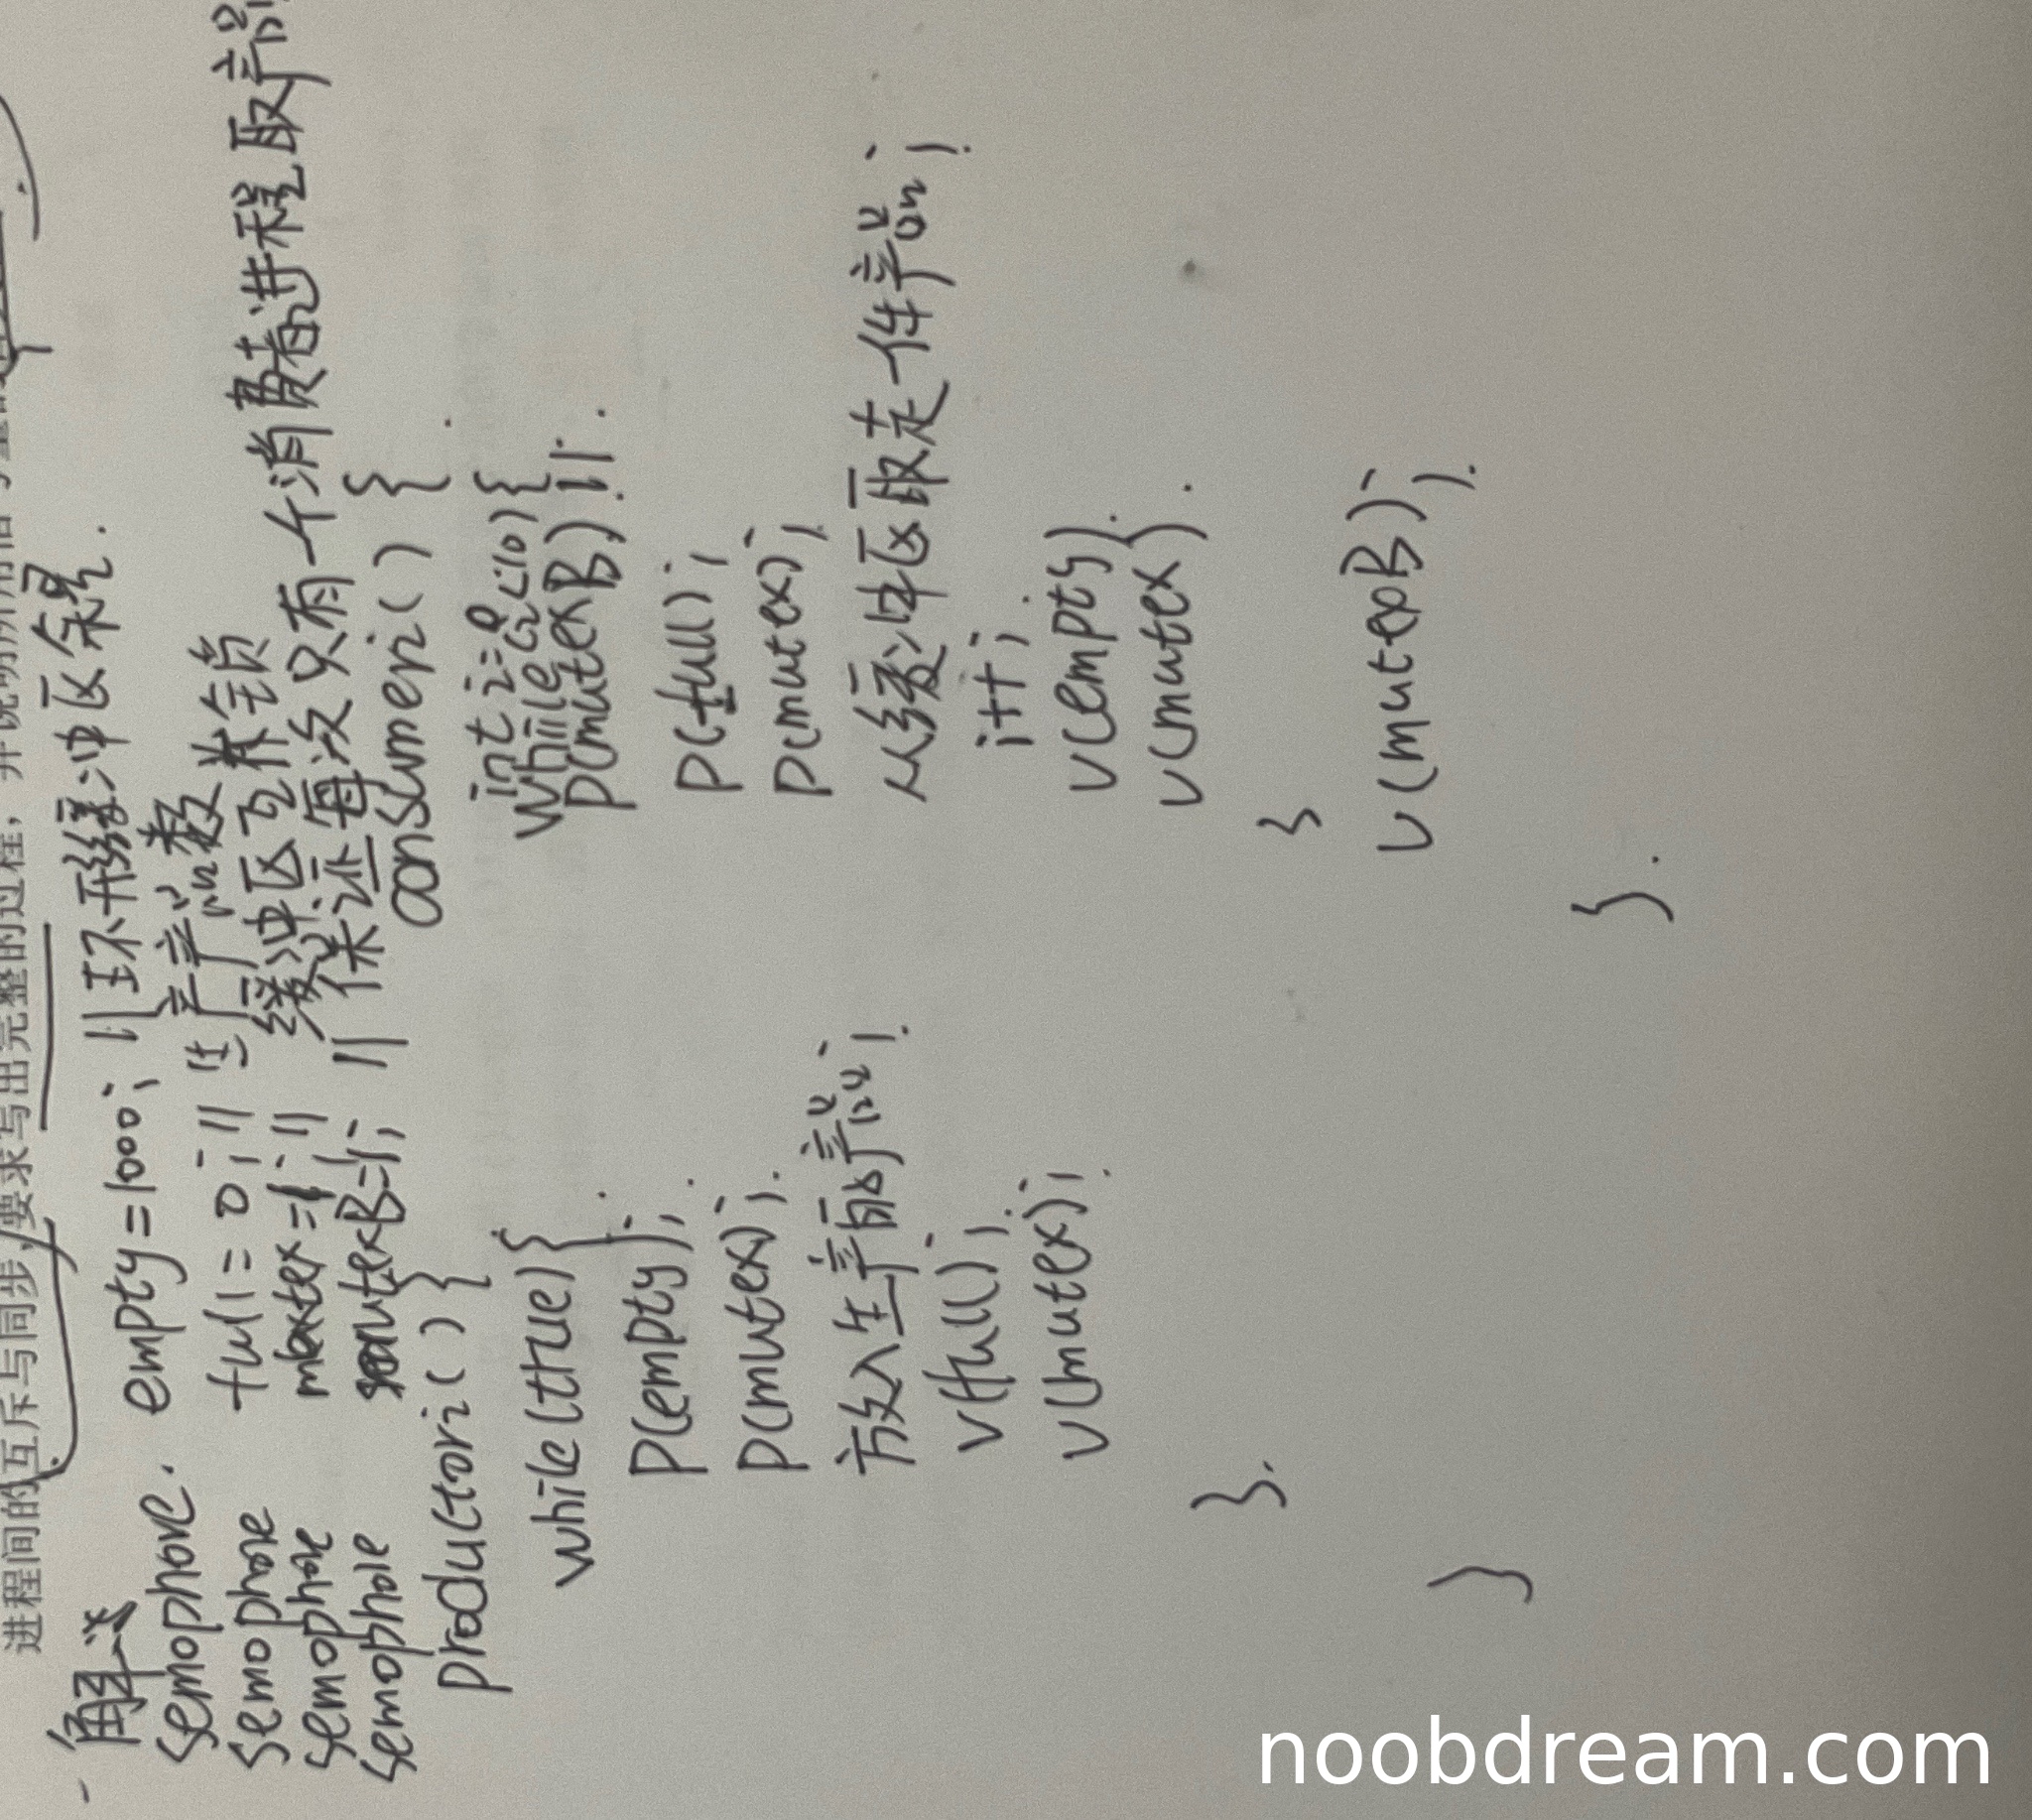 进程间的互斥与同步,要求写出完整的过程,并说明所用信号量的
解
semophore. empty=1000; //环形缓冲区余量.
semophore full=0; // 生产产品数
semophore mutex=1; // 缓冲区互斥锁
semophole mutexB=1; // 保证每次只有一个消费者进程取产品
productori(){
while(ttue){
P(empty);
P(mutex);
放入生产的产品;
V(full);
V(mutex);
}
}
consumeri(){
int i=0
while(i<10){
P(mutexB);
P(full);
P(mutex);
从缓冲区取走一件产品;
i++;
V(empty);
V(mutex).
}
V(mutexB);
}.
noobdream.com